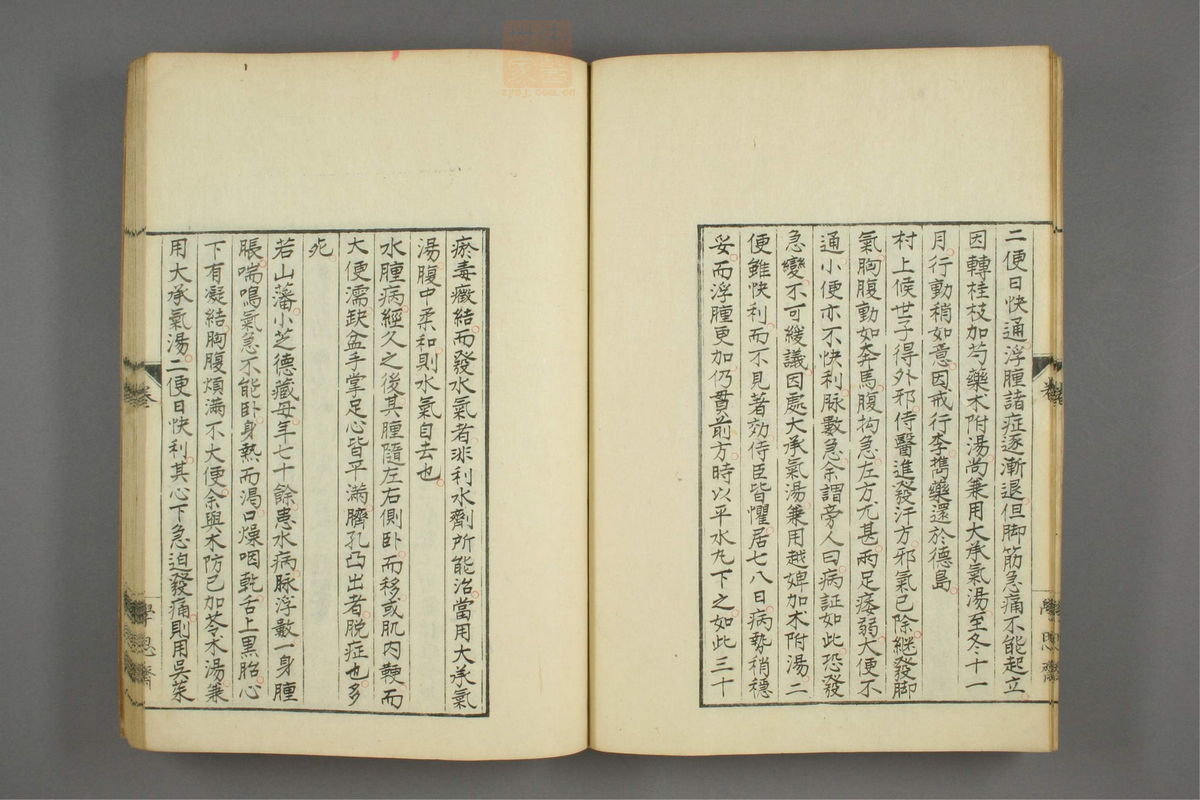 二便日快通浮腫諸症逐漸退但脚筋急痛不能起立
因轉桂枝加芍藥朮附湯尚兼用大承氣湯至冬十一
月行動稍如意因戒行李携藥還於德島
村上候世子得外邪侍醫進發汗方邪氣已除継發脚
氣胸腹動如奔馬腹拘急左方尤甚兩足痿弱大便不
通小便亦不快利脉數急余謂旁人曰病証如此恐發
急變不可緩議因處大承氣湯兼用越婢加朮附湯二
便雖快利而不見著効侍臣皆懼居七八日病勢稍穩
妥而浮腫更加仍貫前方時以平水丸下之如此三十
瘀毒癥結而發水氣者非利水劑所能治當用大承氣
湯腹中柔和則水氣自去也
水腫病經久之後其腫隨左右側卧而移或肌肉鞕而
大便濡缺盆手掌足心皆平滿臍孔凸出者脱症也多
死
若山藩小芝德藏母年七十餘患水病脉浮數一身腫
脹喘鳴氣急不能卧身熱而渴口燥咽乾舌上黒胎心
下有凝結胸腹煩滿不大便余與木防已加苓朮湯兼
用大承氣湯二便日快利其心下急迫發痛則用吳茱
學思齋
zysj.com.cn